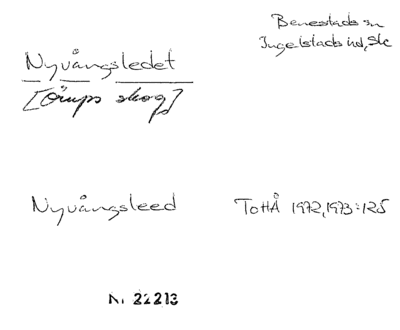 Benestads sn
Ingelstads hd, Sk
Nyvångsledet
[Örups skog]
Nyvångsleed ToHÅ 1972,1973:125
Nr 22213